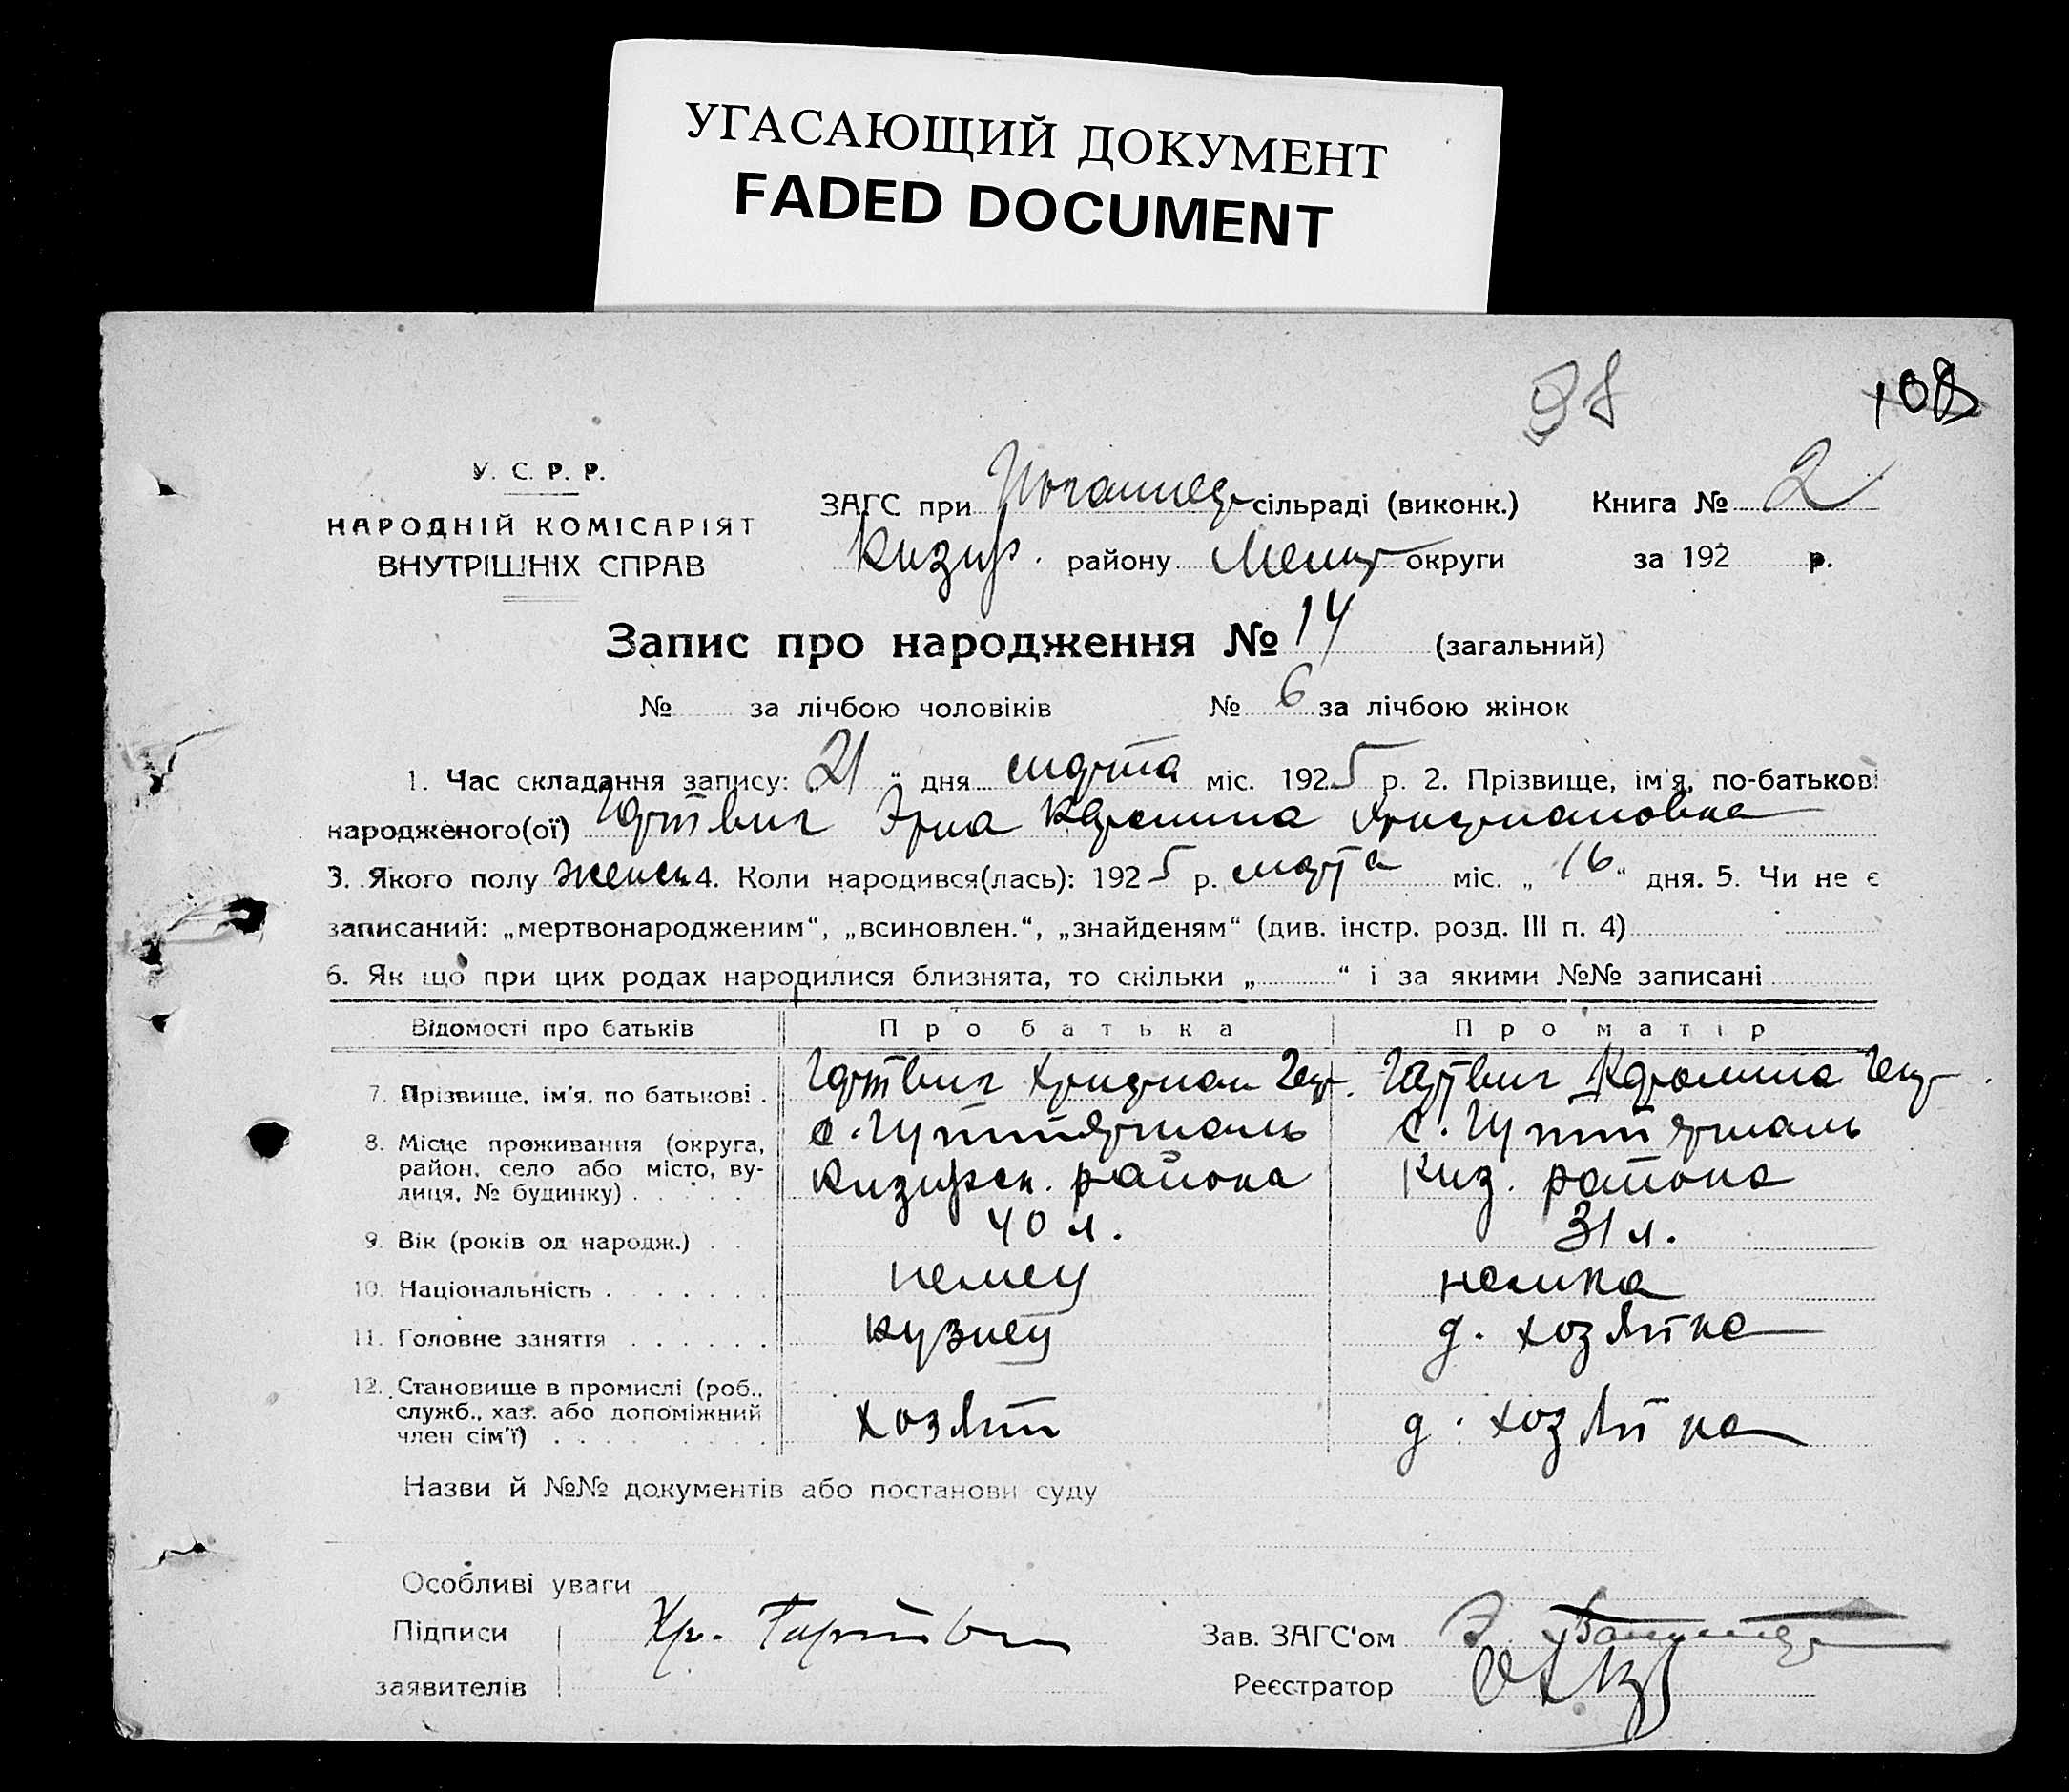 УГАСАЮЩИЙ ДОКУМЕНТ
FADED DOCUMENT
98 108
У. С. Р. Р.
НАРОДНІЙ КОМІСАРІЯТ
ВНУТРІШНІХ СПРАВ
ЗАГС при сільраді (виконк.) Книга № 2
району округи за 192 р.
Запис про народження № 14 (загальний)
№ за лічбою чоловіків № 6 за лічбою жінок
1. Час складання запису: „21“ дня марта міс. 1925 р. 2. Прізвище, ім'я, по-батькові
народженого(ої) Гартвиг Эрна Каролина Христиановна
3. Якого полу женск 4. Коли народився(лась): 1925 р. марта міс. „16“ дня. 5. Чи не є
записаний: „мертвонародженим“, „всиновлен.“, „знайденям“ (див. інстр. розд. III п. 4)
6. Як що при цих родах народилися близнята, то скільки „ “ і за якими №№ записані
Відомості про батьків Про батька Про матір
7. Прізвище, ім'я, по батькові . Гартвиг Христиан Гартвиг Каролина
8. Місце проживання (округа, район, село або місто, вулиця, № будинку) . с. Гуттерталь с. Гуттерталь
района Киз. района
9. Вік (років од народж.) . . 40 л. 31 л.
10. Національність . . . . . . . немец немка
11. Головне заняття . . . . . . кузнец д. хозяйка
12. Становище в промислі (роб., служб., хаз. або допоміжний член сім'ї) . . . . хозяин д. хозяйка
Назви й №№ документів або постанови суду
Особливі уваги
Підписи Хр. Гартвиг Зав. ЗАГС'ом
заявителів Реєстратор